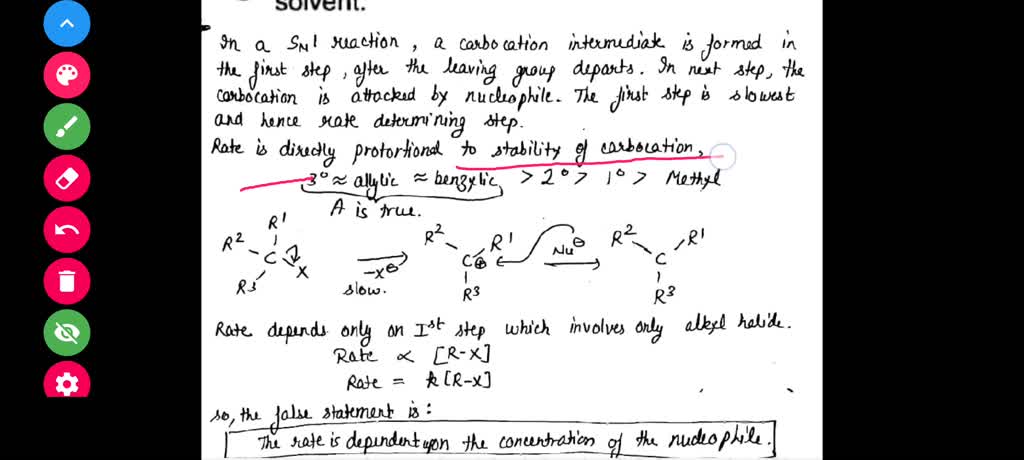 solvent.
In a SN1 reaction, a carbocation intermediate is formed in
the first step, after the leaving group departs. In next step, the
carbocation is attacked by nucleophile. The first step is slowest
and hence rate determining step.
Rate is directly protortional to stability of carbocation,
3° ≈ allylic ≈ benzylic > 2° > 1° > Methyl
A is true.
R² R¹ C X R³
-X⊖
slow.
R² R¹ C⊕ R³
Nu⊖
R² R¹ C R³
Rate depends only on Ist step which involves only alkyl halide.
Rate ∝ [R-X]
Rate = k[R-X]
so, the false statement is:
The rate is dependent upon the concentration of the nucleophile.